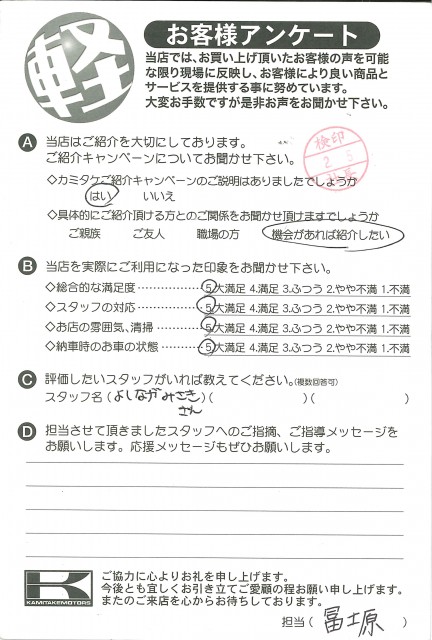 軽
お客様アンケート
当店では、お買い上げ頂いたお客様の声を可能
な限り現場に反映し、お客様により良い商品と
サービスを提供する事に努めています。
大変お手数ですが是非お声をお聞かせ下さい。
A 当店はご紹介を大切にしております。
ご紹介キャンペーンについてお聞かせ下さい。
検印
2 5
◇カミタケご紹介キャンペーンのご説明はありましたでしょうか
はい いいえ
◇具体的にご紹介頂ける方とのご関係をお聞かせ頂けますでしょうか
ご親族 ご友人 職場の方 機会があれば紹介したい
B 当店を実際にご利用になった印象をお聞かせ下さい。
◇総合的な満足度……………5.大満足 4.満足 3.ふつう 2.やや不満 1.不満
◇スタッフの対応……………5.大満足 4.満足 3.ふつう 2.やや不満 1.不満
◇お店の雰囲気、清掃………5.大満足 4.満足 3.ふつう 2.やや不満 1.不満
◇納車時のお車の状態………5.大満足 4.満足 3.ふつう 2.やや不満 1.不満
C 評価したいスタッフがいれば教えてください。(複数回答可)
スタッフ名(よしながみさき)( )( )
さん
D 担当させて頂きましたスタッフへのご指摘、ご指導メッセージを
お願いします。応援メッセージもぜひお願いします。
K
KAMITAKEMOTORS
ご協力に心よりお礼を申し上げます。
今後とも宜しくお引き立てご愛顧の程お願い申し上げます。
またのご来店を心からお待ちしております。
担当( 冨士原 )